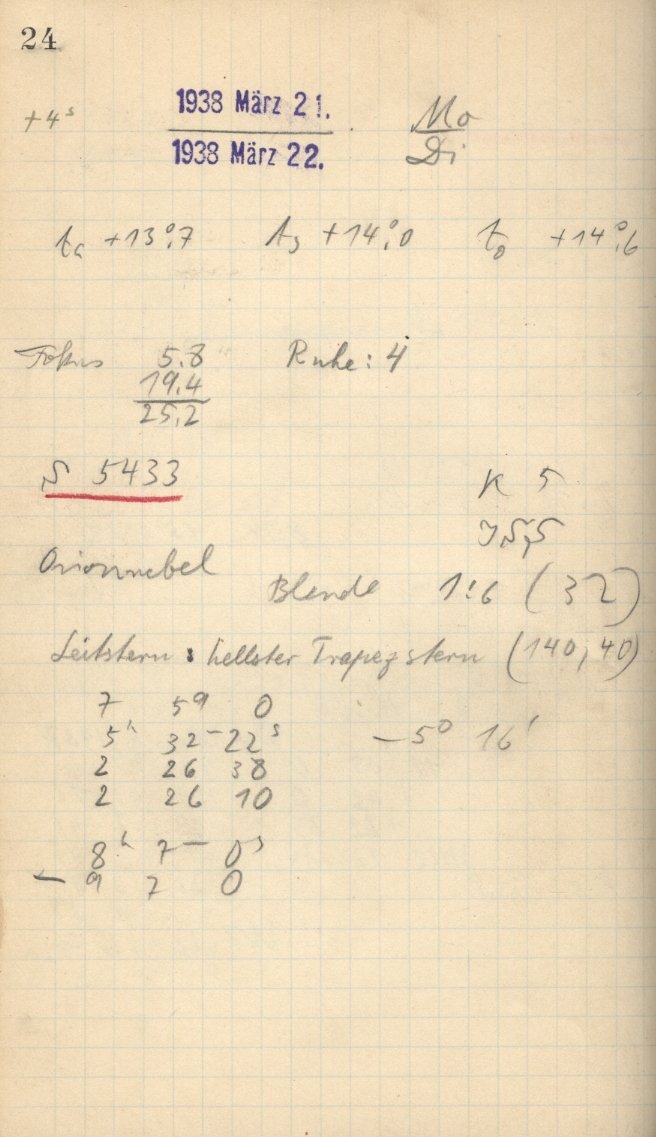 24
+4ˢ 1938 März 21. Mo
1938 März 22. Di
+13°,7 +14°,0 +14°,6
Fokus 5.8 Ruhe: 4
19.4
25.2
S 5433
K 5
Orionnebel
Blende 1:6 (32)
Leitstern: hellster Trapezstern (140, 40)
7 59 0
5ʰ 32ᵐ 22ˢ −5° 16'
2 26 38
2 26 10
8ʰ 7ᵐ 0ˢ
− 9 7 0